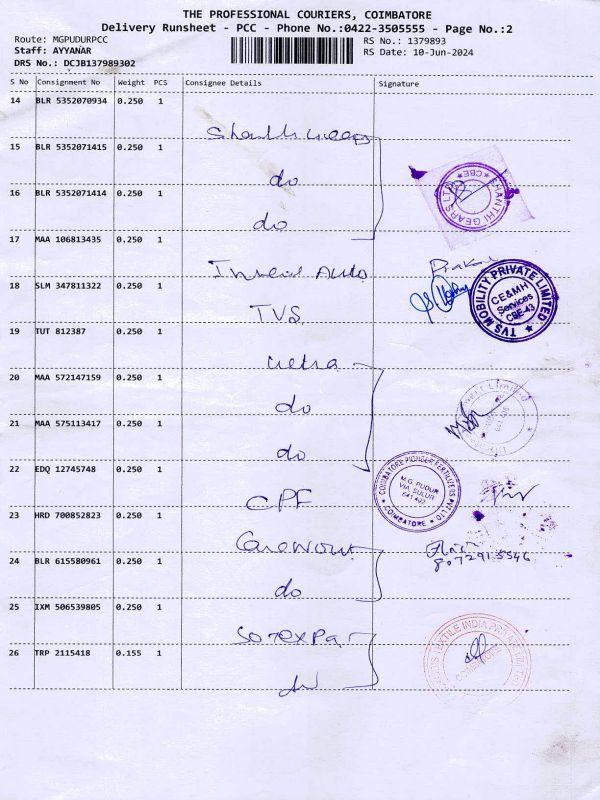 THE PROFESSIONAL COURIERS, COIMBATORE
Delivery Runsheet - PCC - Phone No.:0422-3505555 - Page No.:2
Route: MGPUDURPCC
RS No.: 1379893
Staff: AYYANAR
RS Date: 10-Jun-2024
DRS No.: DCJB137989302
S No Consignment No Weight PCS Consignee Details Signature
14 BLR 5352070934 0.250 1
15 BLR 5352071415 0.250 1
do
16 BLR 5352071414 0.250 1
SHANTHI GEARS LTD CBE
do
17 MAA 106813435 0.250 1
Auto
18 SLM 347811322 0.250 1
TVS MOBILITY PRIVATE LIMITED
CE&MH
Services
CBE-43
TVS
19 TUT 812387 0.250 1
20 MAA 572147159 0.250 1
do
Limited
21 MAA 575113417 0.250 1
do
22 EDQ 12745748 0.250 1
COIMBATORE PIONEER FERTILIZERS PVT LTD
M.G. PUDUR
VIA, SULUR
641 402
COIMBATORE
CPF
23 HRD 700852823 0.250 1
8072915546
24 BLR 615580961 0.250 1
do
25 IXM 506539805 0.250 1
TEXTILE INDIA PRIVATE LIMITED
26 TRP 2115418 0.155 1
do